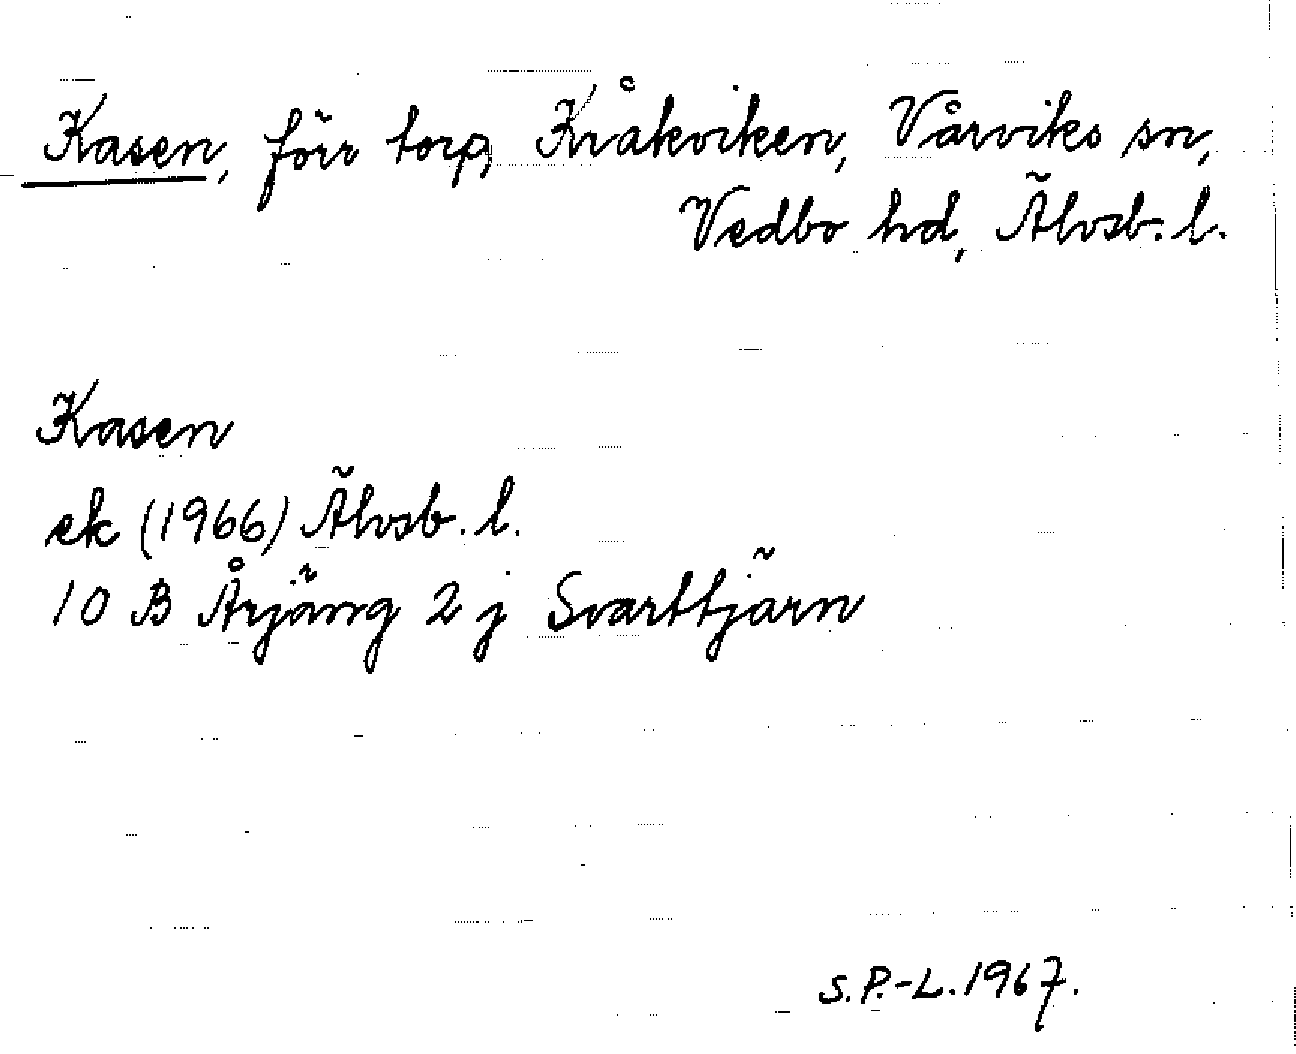 Kasen, förr torp, Kråkviken, Vårviks sn,
Vedbo hd, Älvsb. l.
Kasen
ek (1966) Älvsb. l.
10 B Årjäng 2 j Svarttjärn
S.P.-L. 1967.